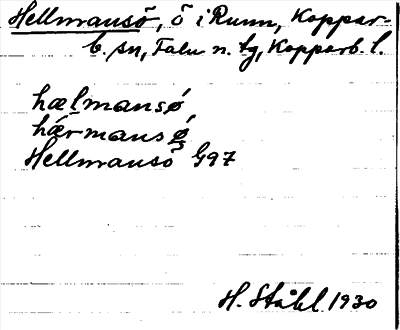 Hellmansö, ö i Runn, Koppar-
b. sn, Falu n. tg, Kopparb. l.
hælmansǿ
hǽrmansø̀
Hellmansö G97
H. Ståhl 1930